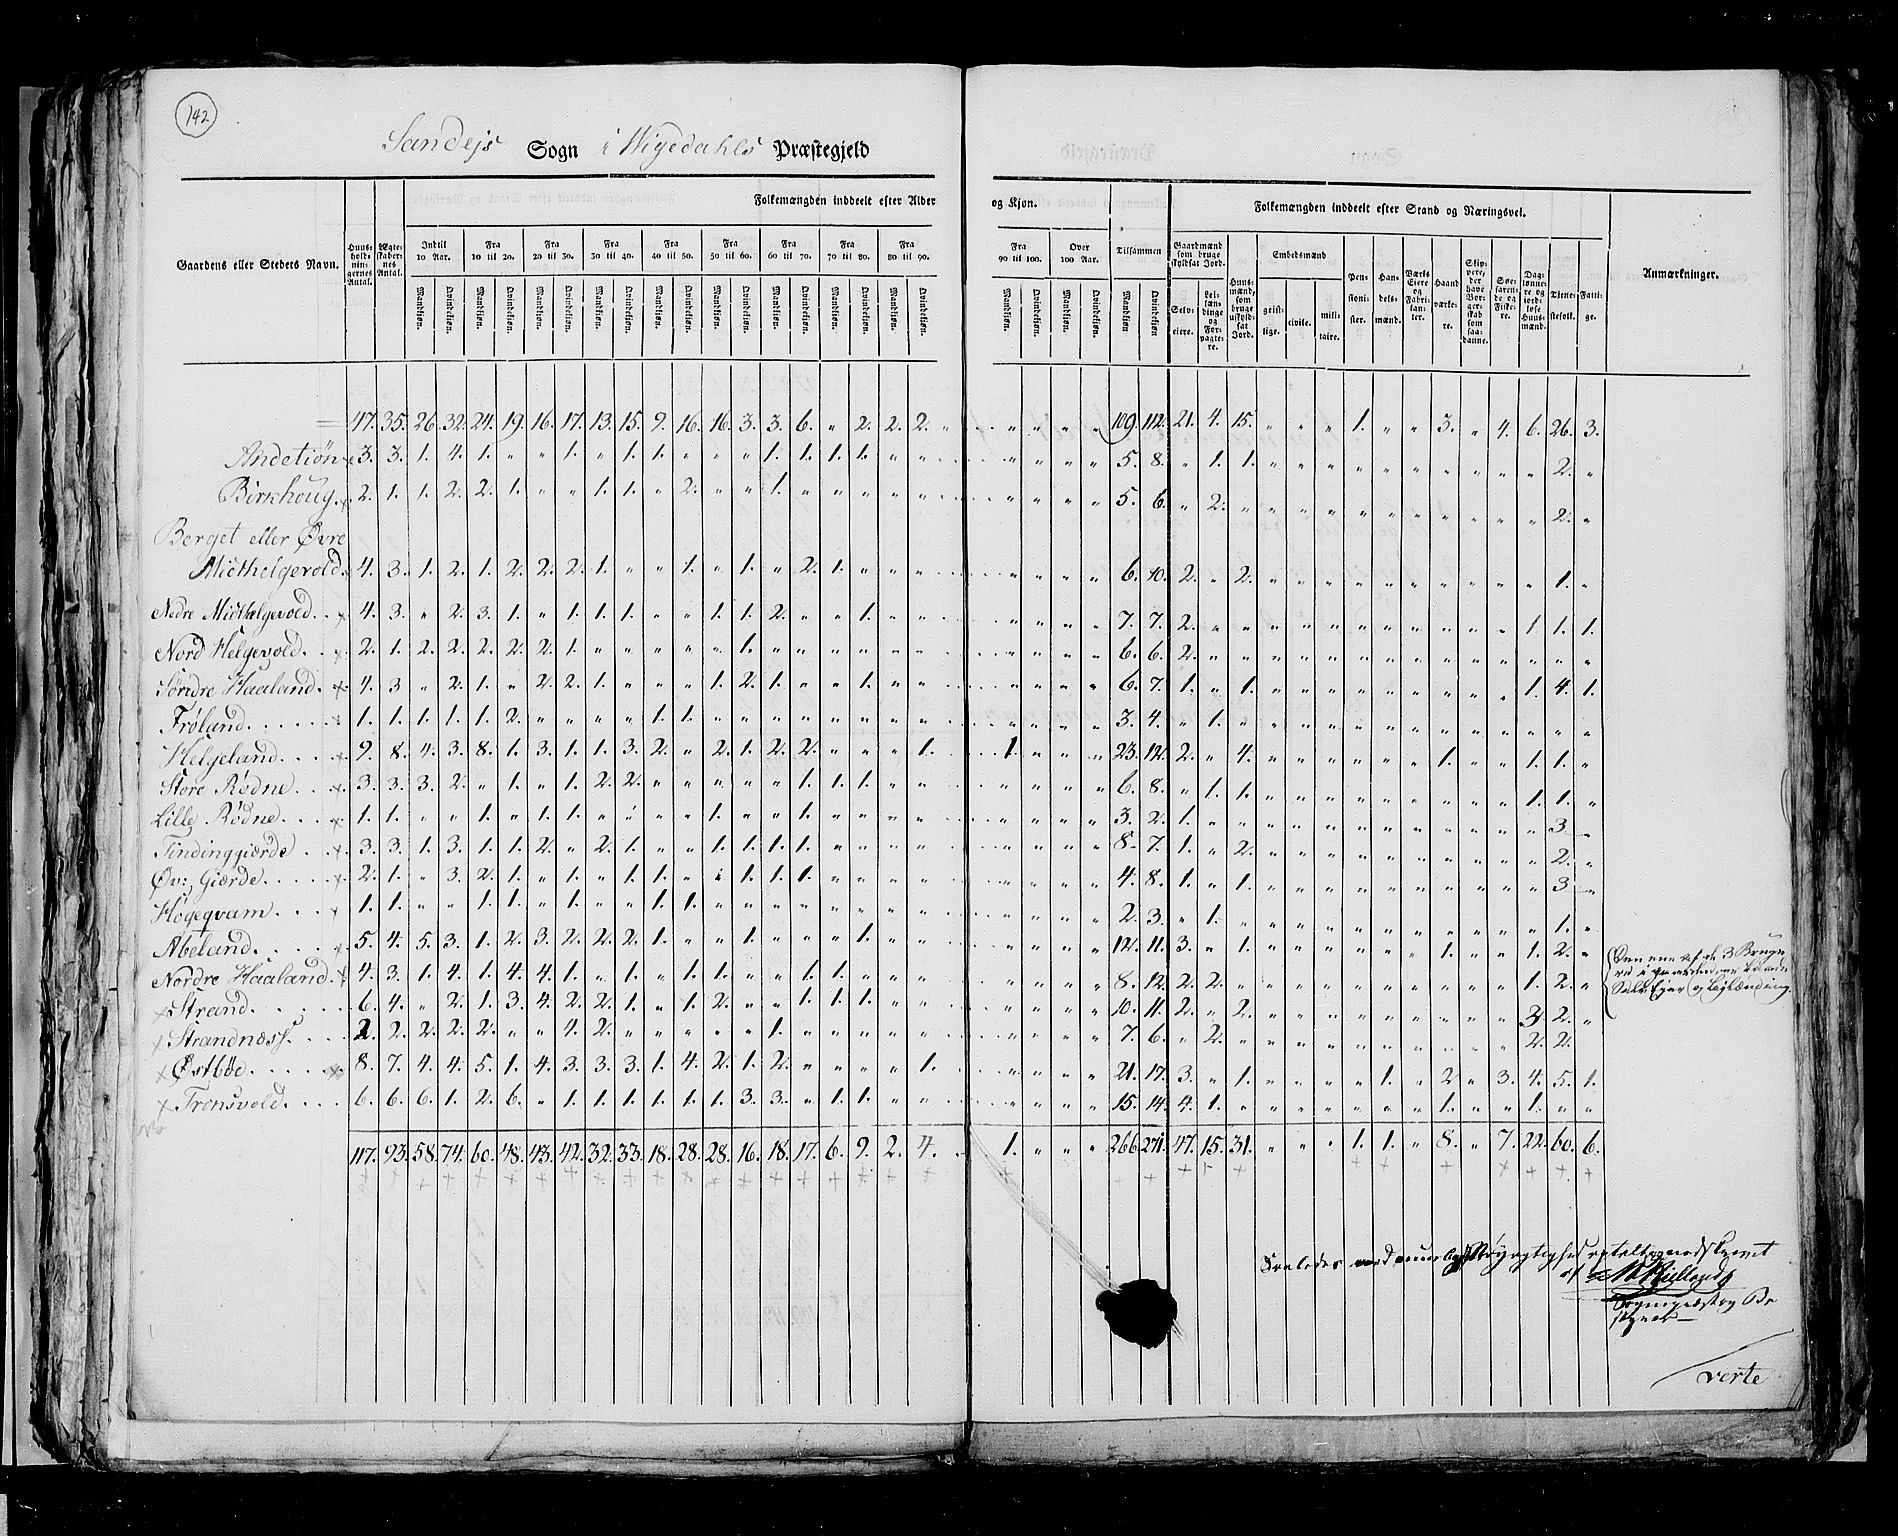 142
Sandejs Sogn i Wigedahls Præstegjeld
Folkemængden inddeelt efter Alder og Kjøn.
Folkemængden inddeelt efter Stand og Næringsvei.
Gaardens eller Stedets Navn.
Huus-hold-nin-gernes Antal.
Ægte-skaber-nes Antal.
Indtil 10 Aar.
Fra 10 til 20.
Fra 20 til 30.
Fra 30 til 40.
Fra 40 til 50.
Fra 50 til 60.
Fra 60 til 70.
Fra 70 til 80.
Fra 80 til 90.
Fra 90 til 100.
Over 100 Aar.
Tilsammen
Gaardmænd som bruge skyldsat Jord.
Huus-mænd, som bruge uskyld-sat Jord.
Embedsmænd
Pen-sioni-ster.
Han-dels-mænd.
Værks Eiere og Fabri-kan-ter.
Haand værke-re.
Skip-pere, der have Bor-ger-skab som saa-danne.
Søe-faren-de og Fiske-re.
Dag-lønne-re og jord-løse Huus-mænd.
Tjene-stefolk.
Fatti-ge.
Anmærkninger.
Mandkjøn. Qvindekjøn. Mandkjøn. Qvindekjøn. Mandkjøn. Qvindekjøn. Mandkjøn. Qvindekjøn. Mandkjøn. Qvindekjøn. Mandkjøn. Qvindekjøn. Mandkjøn. Qvindekjøn. Mandkjøn. Qvindekjøn. Mandkjøn. Qvindekjøn. Mandkjøn. Qvindekjøn. Mandkjøn. Qvindekjøn. Mandkjøn Qvindekjøn
Selv-eiere.
Lei-læn-dinge og For-pagte-re.
geist-lige.
civile.
mili-taire.
= 47. 35. 26. 32. 24. 19. 16. 17. 13. 15. 9. 16. 16. 3. 3. 6. „ 2. 2. 2. „ „ „ „ 109. 112. 21. 4. 15. „ „ „ 1. „ „ 3. „ 4. 6. 26. 3.
Andetiøn 3. 3. 1. 4. 1. „ „ 1. „ 1. 1. „ „ „ 1. 1. 1. 1. „ „ „ „ „ „ 5. 8. „ 1. 1. „ „ „ „ „ „ „ „ „ „ 2. „
Birkhoug. 2. 1. 1. 2. 2. 1. „ „ 1. 1. „ 2. „ „ 1. „ „ „ „ „ „ „ „ „ 5. 6. „ 2. „ „ „ „ „ „ „ „ „ „ „ 2. „
Berget eller Øvre
Midthelgevold. 4. 3. 1. 2. 1. 2. 2. 2. 1. „ „ 1. „ 1. „ 2. 1. „ „ „ „ „ „ „ 6. 10. 2. „ 2. „ „ „ „ „ „ „ „ „ „ 1. „
Nedre Midthelgevold. 4. 3. „ 2. 3. 1. „ 1. 1. 1. „ „ 1. 1. 2. „ „ 1. „ „ „ „ „ „ 7. 7. 2. „ „ „ „ „ „ „ „ „ „ „ 1. 1. 1.
Nord Helgevold. 2. 1. 2. 2. 2. 2. 2. 1. „ „ „ „ „ 1. „ „ „ „ „ „ „ „ „ „ 6. 6. 2. „ „ „ „ „ „ „ „ „ „ „ „ „ „
Søndre Haaland. 4. 3 „ 2. 1. „ 2. 2. 1. „ „ „ 1. 2. 1. „ „ 1. „ „ „ „ „ „ 6. 7. 1. „ 1. „ „ „ „ „ „ „ „ „ 1. 4. 1.
Frøland. 1. 1. 1. 1. 1. 2. „ „ „ „ 1. 1. „ „ „ „ „ „ „ „ „ „ „ „ 3. 4. „ 1. „ „ „ „ „ „ „ „ „ „ „ „ „
Helgeland. 9. 8. 4. 3. 8. 1. 3. 1. 1. 3. 2. „ 2. 1. 2. 2. „ „ „ 1. 1. „ „ „ 23. 12. 2. „ 4. „ „ „ „ „ „ 1. „ „ 1. 1. „
Store Rødne. 3. 3. 3. 2. „ 1. „ 1. 2. 2. „ „ „ „ „ 1. 1. 1. „ „ „ „ „ „ 6. 8. „ 1. 1. „ „ „ „ „ „ „ „ „ 1. 1. „
Lille Rødne. 1. 1. „ „ 1. „ 1. 1. „ „ „ „ 1. „ „ 1. „ „ „ „ „ „ „ „ 3. 2. 1. „ „ „ „ „ „ „ „ „ „ „ „ 3 „
Tindinggiærde 3. 3. 1. 3. 1. 1. 2. „ 2. 1. „ „ 1. 1. 1. 1. „ „ „ „ „ „ „ „ 8. 7. 1. „ 2. „ „ „ „ „ „ „ „ „ „ 2. „
Øv: Giærde. 2. 1. „ 3. 2. 1. „ 1. „ 1. 1. „ 1. 1. 1. „ „ „ „ „ „ „ „ 4. 8. 1. „ 1. „ „ „ „ „ „ „ „ „ „ 3 „
Høgeqvam. 1. 1. „ „ 1. 1. „ 1. „ „ 1. 1. „ „ „ „ „ „ „ „ „ „ „ „ 2. 3. „ 1. „ „ „ „ „ „ „ „ „ „ „ 1. „
Abeland. 5. 4. 5. 3. 1. 2. 3. 2. 2. 2. 1. „ „ 1. „ „ „ 1. „ „ „ „ „ „ 12. 11. 3. „ 1. „ „ „ „ „ „ 1. „ „ 1. 2. „
Nordre Haaland. 4. 3. 1. 4. 1. 4. 4. 1. „ 1. „ 1. 1. „ „ 1. 1. „ „ „ „ „ „ „ 8. 12. 2. 2. „ „ „ „ „ „ „ „ „ „ 1. 2. „
Strand. 6. 4. „ 2. 1. 3. 4. 2. 2. 1. „ 1. 2. „ „ 1. 1. 1. „ „ „ „ „ „ 10. 11. 2. „ 2. „ „ „ „ „ „ „ „ „ 3. 2. „
Strandnæss. 2. 2. 2. 2. 2. „ „ 4. 2. „ „ „ „ „ 1. „ „ „ „ „ „ „ „ „ 7. 6. „ 2. „ „ „ „ „ „ „ „ „ „ 2. 2.
Østbøe. 8. 7. 4. 4. 5. 1. 4. 3. 3. 3. 1. 4. 2. 1. 2. „ „ „ „ 1. „ „ „ „ 21. 17. 3. „ 1. „ „ „ „ 1. „ 2 „ 3. 4. 5. 1.
Tronsvold. 6. 6. 6. 1. 2. 6. „ 1. 1. 1. 1. 1. 1. 3. 3. „ 1. 1. „ „ „ „ „ „ 15. 14. 4. 1. „ „ „ „ „ „ „ 1. „ „ 1. „ „
117. 93. 58. 74. 60. 48. 43. 42. 32. 33. 18. 28. 28. 16. 18. 17. 6. 9. 2. 4. 1. „ „ „ 266. 271. 47. 15. 31. „ „ „ 1. 1. „ 8. „ 7. 22. 60. 6.
Den ene af de 3 Bruge
Selv Ejer og Leylænding.
af
verte